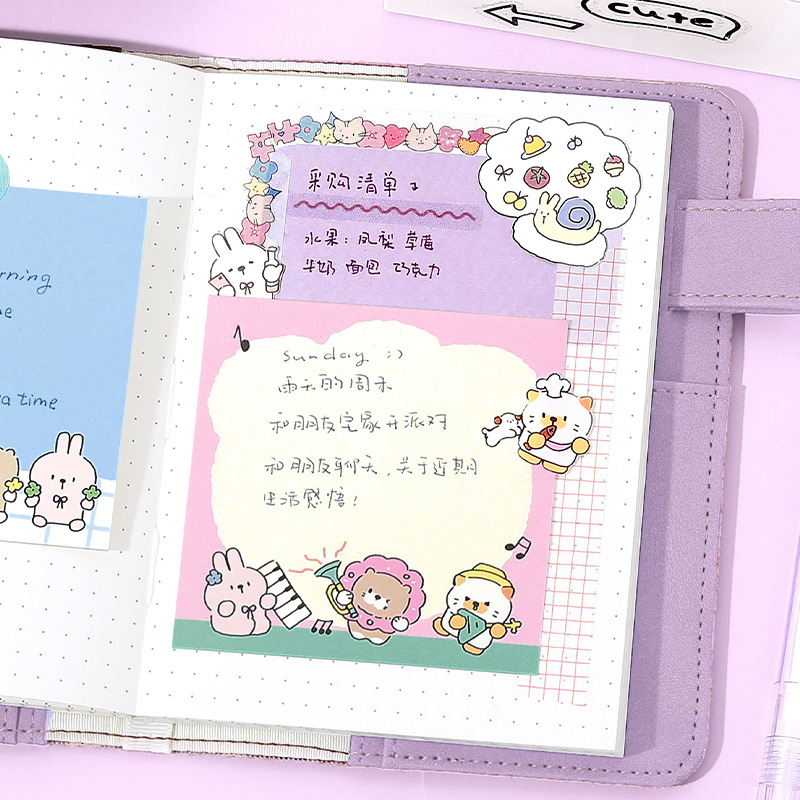 cute
采购清单
水果：凤梨 草莓
牛奶 面包 巧克力
sunday :)
雨天的周末
和朋友宅家开派对
和朋友聊天，关于近期
生活感悟！
rning
e
a time